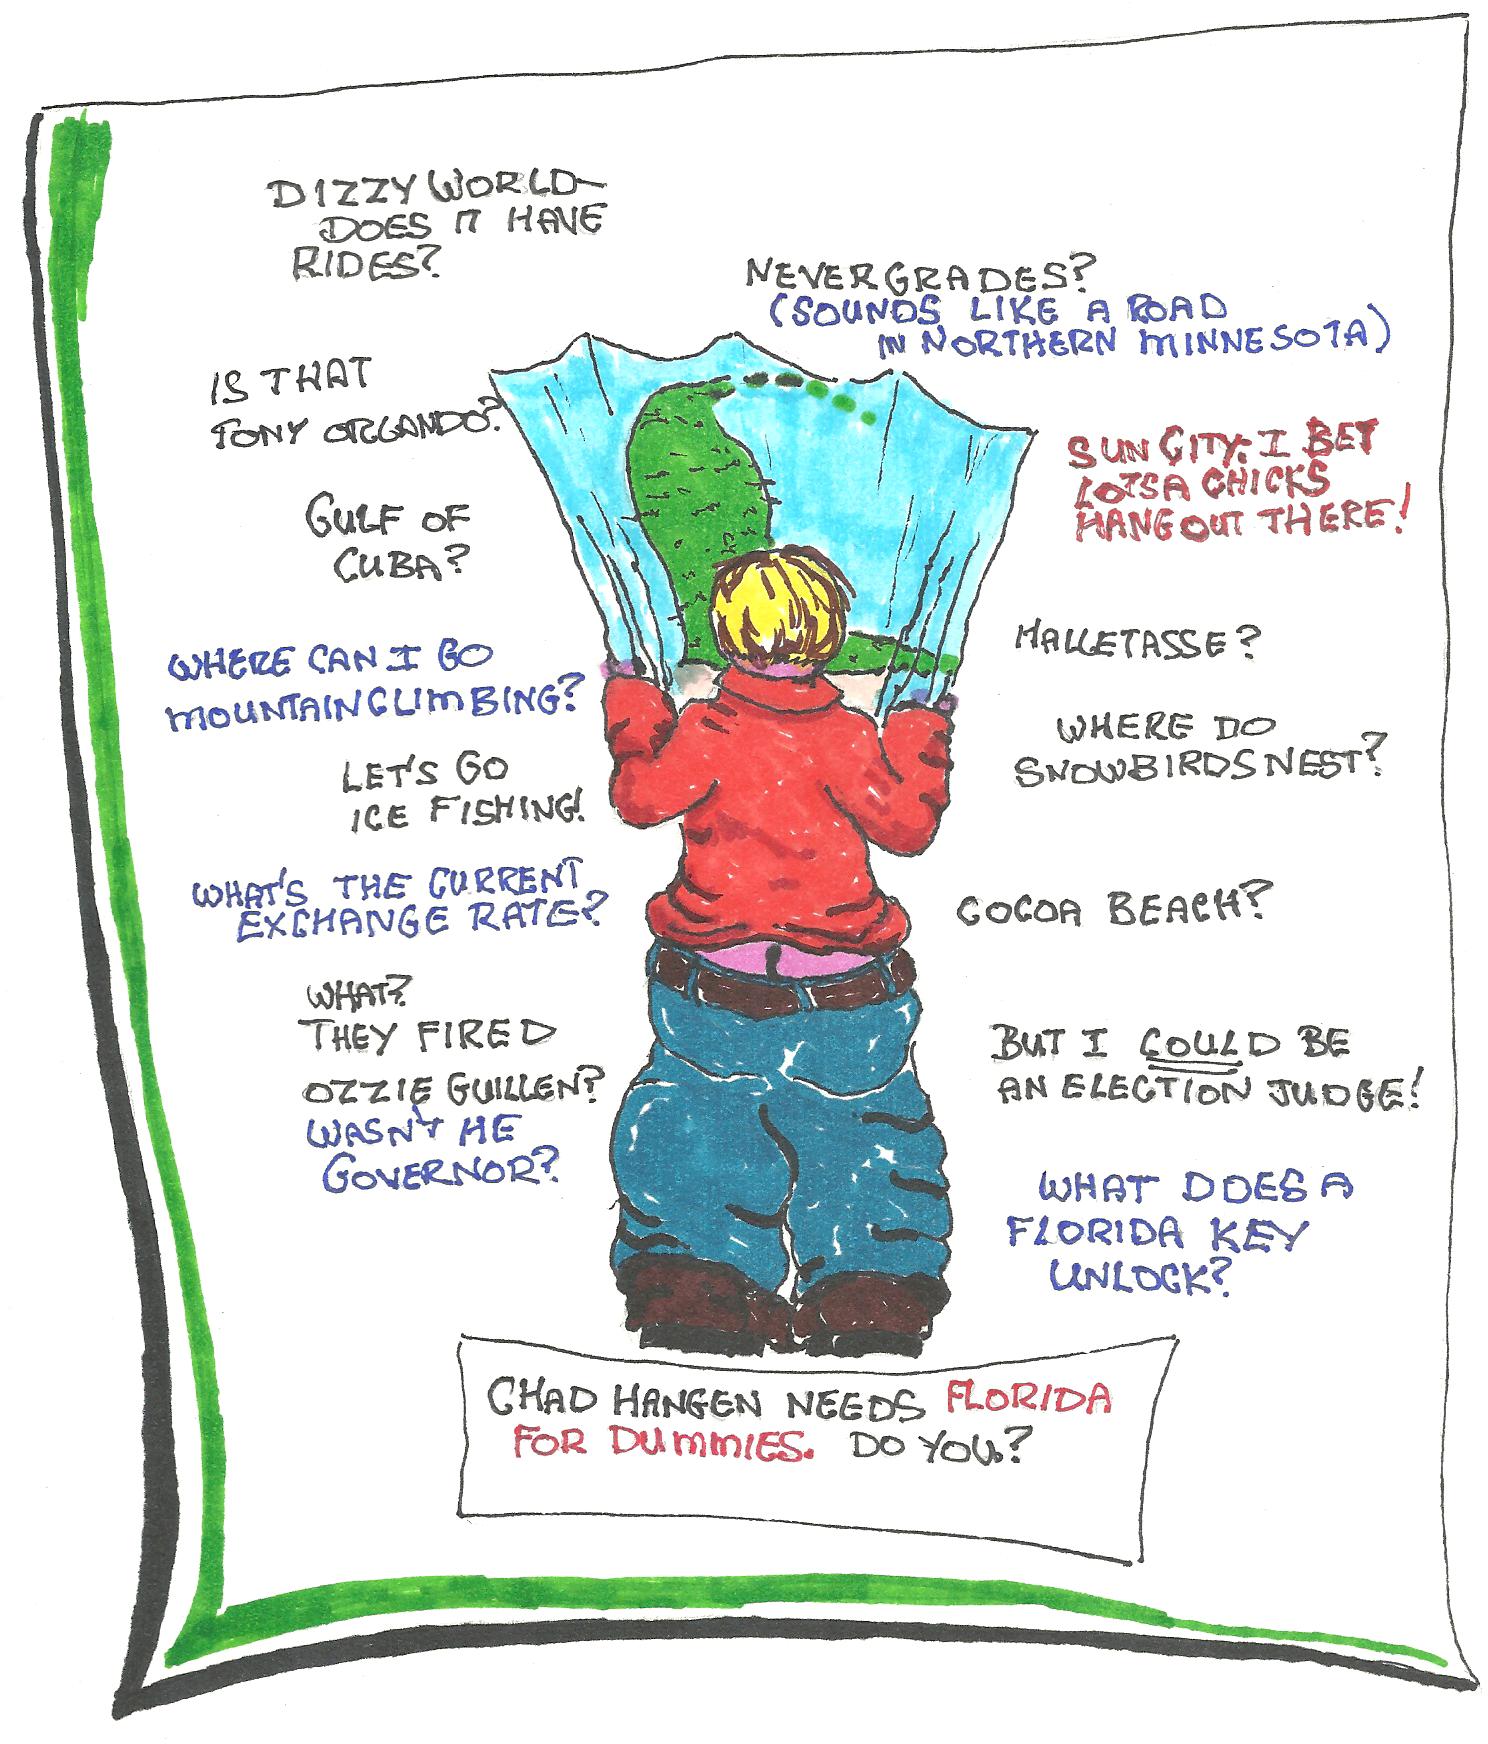 DIZZY WORLD-
DOES IT HAVE
RIDES?
NEVERGRADES?
(SOUNDS LIKE A ROAD
IN NORTHERN MINNESOTA)
IS THAT
TONY ORLANDO?
SUN CITY: I BET
LOTSA CHICKS
HANG OUT THERE!
GULF OF
CUBA?
HALLETASSE?
WHERE CAN I GO
MOUNTAIN CLIMBING?
WHERE DO
SNOWBIRDS NEST?
LET'S GO
ICE FISHING!
WHAT'S THE CURRENT
EXCHANGE RATE?
COCOA BEACH?
WHAT?
THEY FIRED
OZZIE GUILLEN?
WASN'T HE
GOVERNOR?
BUT I COULD BE
AN ELECTION JUDGE!
WHAT DOES A
FLORIDA KEY
UNLOCK?
CHAD HANGEN NEEDS FLORIDA
FOR DUMMIES. DO YOU?